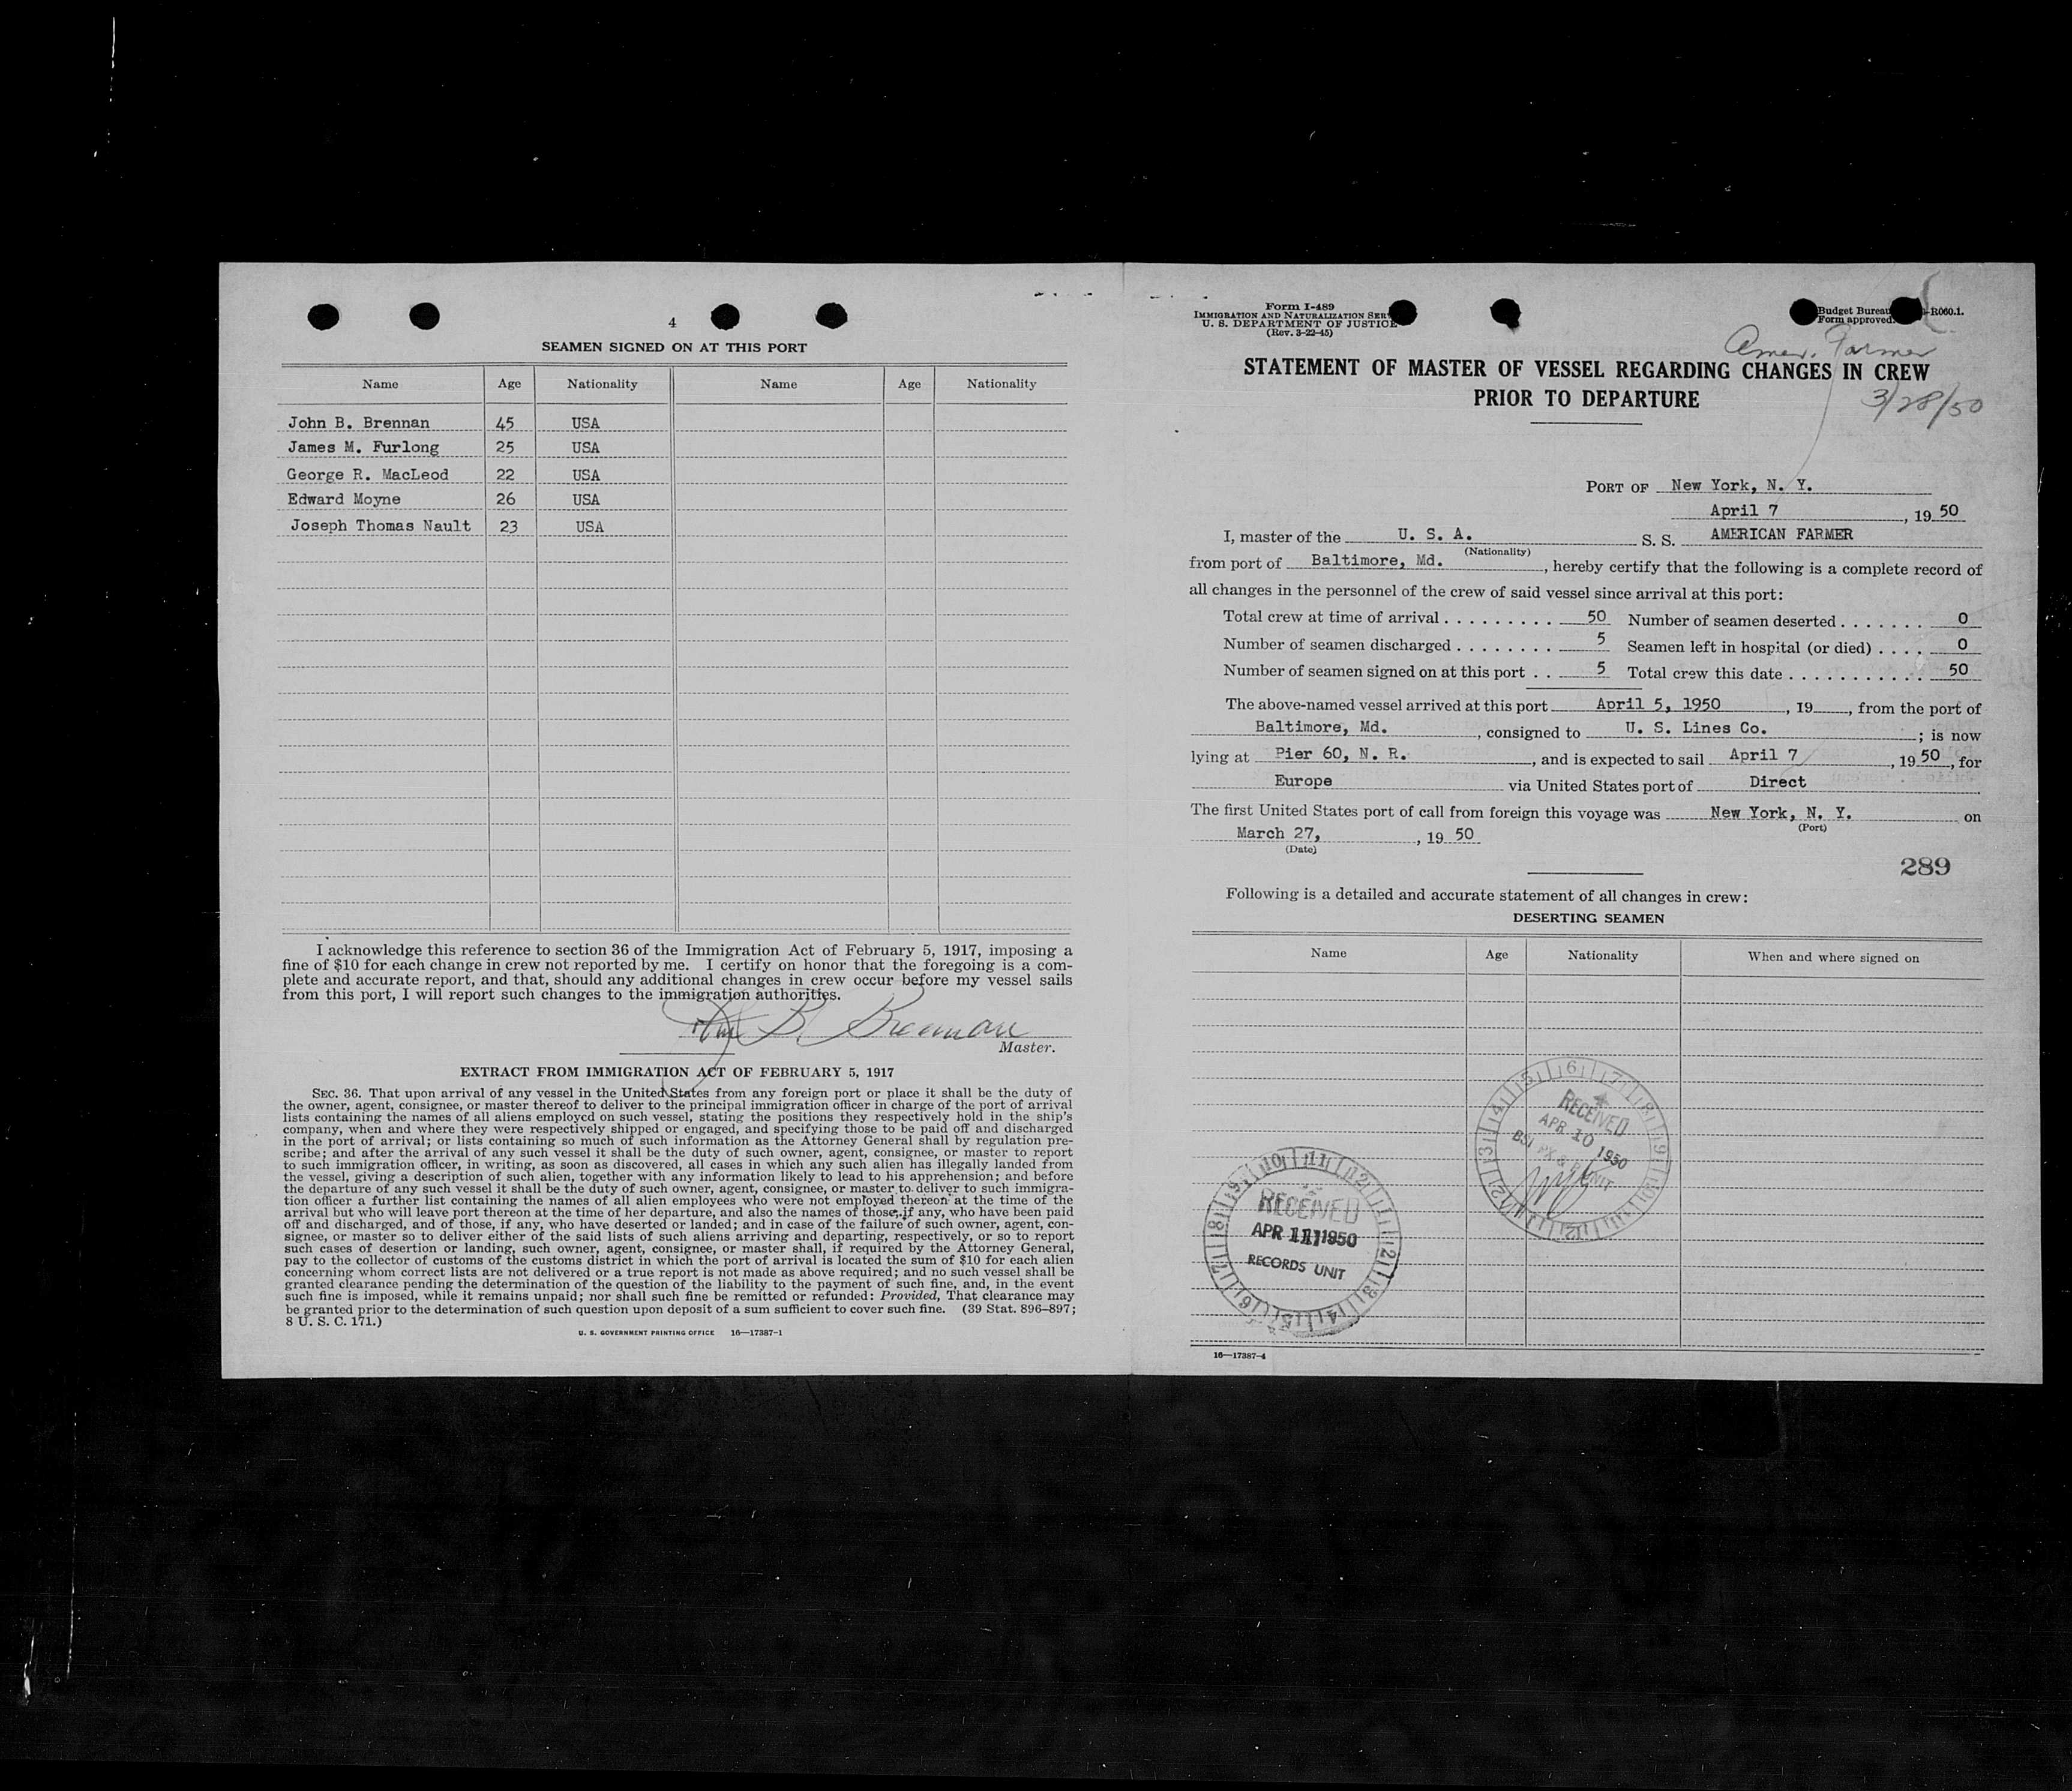 4
SEAMEN SIGNED ON AT THIS PORT
Name Age Nationality Name Age Nationality
John B. Brennan 45 USA
James M. Furlong 25 USA
George R. MacLeod 22 USA
Edward Moyne 26 USA
Joseph Thomas Nault 23 USA
I acknowledge this reference to section 36 of the Immigration Act of February 5, 1917, imposing a
fine of $10 for each change in crew not reported by me. I certify on honor that the foregoing is a com-
plete and accurate report, and that, should any additional changes in crew occur before my vessel sails
from this port, I will report such changes to the immigration authorities.
B. Brennan
Master.
EXTRACT FROM IMMIGRATION ACT OF FEBRUARY 5, 1917
SEC. 36. That upon arrival of any vessel in the United States from any foreign port or place it shall be the duty of
the owner, agent, consignee, or master thereof to deliver to the principal immigration officer in charge of the port of arrival
lists containing the names of all aliens employed on such vessel, stating the positions they respectively hold in the ship's
company, when and where they were respectively shipped or engaged, and specifying those to be paid off and discharged
in the port of arrival; or lists containing so much of such information as the Attorney General shall by regulation pre-
scribe; and after the arrival of any such vessel it shall be the duty of such owner, agent, consignee, or master to report
to such immigration officer, in writing, as soon as discovered, all cases in which any such alien has illegally landed from
the vessel, giving a description of such alien, together with any information likely to lead to his apprehension; and before
the departure of any such vessel it shall be the duty of such owner, agent, consignee, or master to deliver to such immigra-
tion officer a further list containing the names of all alien employees who were not employed thereon at the time of the
arrival but who will leave port thereon at the time of her departure, and also the names of those, if any, who have been paid
off and discharged, and of those, if any, who have deserted or landed; and in case of the failure of such owner, agent, con-
signee, or master so to deliver either of the said lists of such aliens arriving and departing, respectively, or so to report
such cases of desertion or landing, such owner, agent, consignee, or master shall, if required by the Attorney General,
pay to the collector of customs of the customs district in which the port of arrival is located the sum of $10 for each alien
concerning whom correct lists are not delivered or a true report is not made as above required; and no such vessel shall be
granted clearance pending the determination of the question of the liability to the payment of such fine, and, in the event
such fine is imposed, while it remains unpaid; nor shall such fine be remitted or refunded: Provided, That clearance may
be granted prior to the determination of such question upon deposit of a sum sufficient to cover such fine. (39 Stat. 896–897;
8 U. S. C. 171.)
U. S. GOVERNMENT PRINTING OFFICE 16—17387-1
Form I-489
IMMIGRATION AND NATURALIZATION SER
U. S. DEPARTMENT OF JUSTICE
(Rev. 3-22-45)
Budget Bureau -R060.1.
Form approved.
Amer. Farmer
STATEMENT OF MASTER OF VESSEL REGARDING CHANGES IN CREW
PRIOR TO DEPARTURE
3/28/50
PORT OF New York, N. Y.
April 7, 19 50
I, master of the U. S. A. S. S. AMERICAN FARMER
(Nationality)
from port of Baltimore, Md., hereby certify that the following is a complete record of
all changes in the personnel of the crew of said vessel since arrival at this port:
Total crew at time of arrival . . . . . . . . . 50 Number of seamen deserted . . . . . . . 0
Number of seamen discharged . . . . . . . . 5 Seamen left in hospital (or died) . . . . 0
Number of seamen signed on at this port . . 5 Total crew this date . . . . . . . . . . . 50
The above-named vessel arrived at this port April 5, 1950, 19, from the port of
Baltimore, Md., consigned to U. S. Lines Co.; is now
lying at Pier 60, N. R., and is expected to sail April 7, 19 50, for
Europe via United States port of Direct
The first United States port of call from foreign this voyage was New York, N. Y. on
(Port)
March 27, , 19 50
(Date)
289
Following is a detailed and accurate statement of all changes in crew:
DESERTING SEAMEN
Name Age Nationality When and where signed on
RECEIVED
APR 10 1950
BSI
UNIT
RECEIVED
APR 11 1950
RECORDS UNIT
16—17387-4